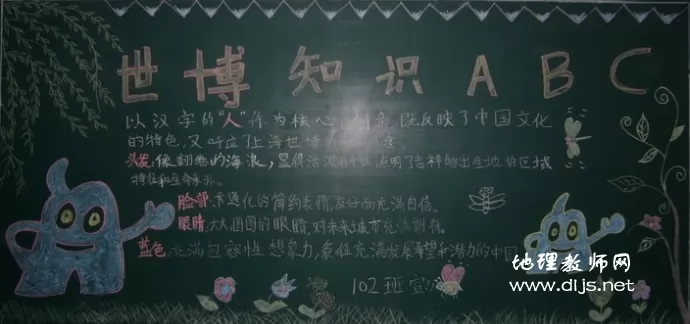 世博知识ABC
以汉字的"人"作为核心创意,既反映了中国文化
的特色,又呼应了上海世博
头发:像翻卷的海浪,显得活泼 点明了吉祥物出生地的区域
特征和生命来源。
脸部:卡通化的简约表情,友好而充满自信。
眼睛:大大、圆圆的眼睛,对未来城市充满期待。
蓝色:充满包容性、想象力,象征充满发展希望和潜力的中国
102班宣
地理教师网
www.dljs.net